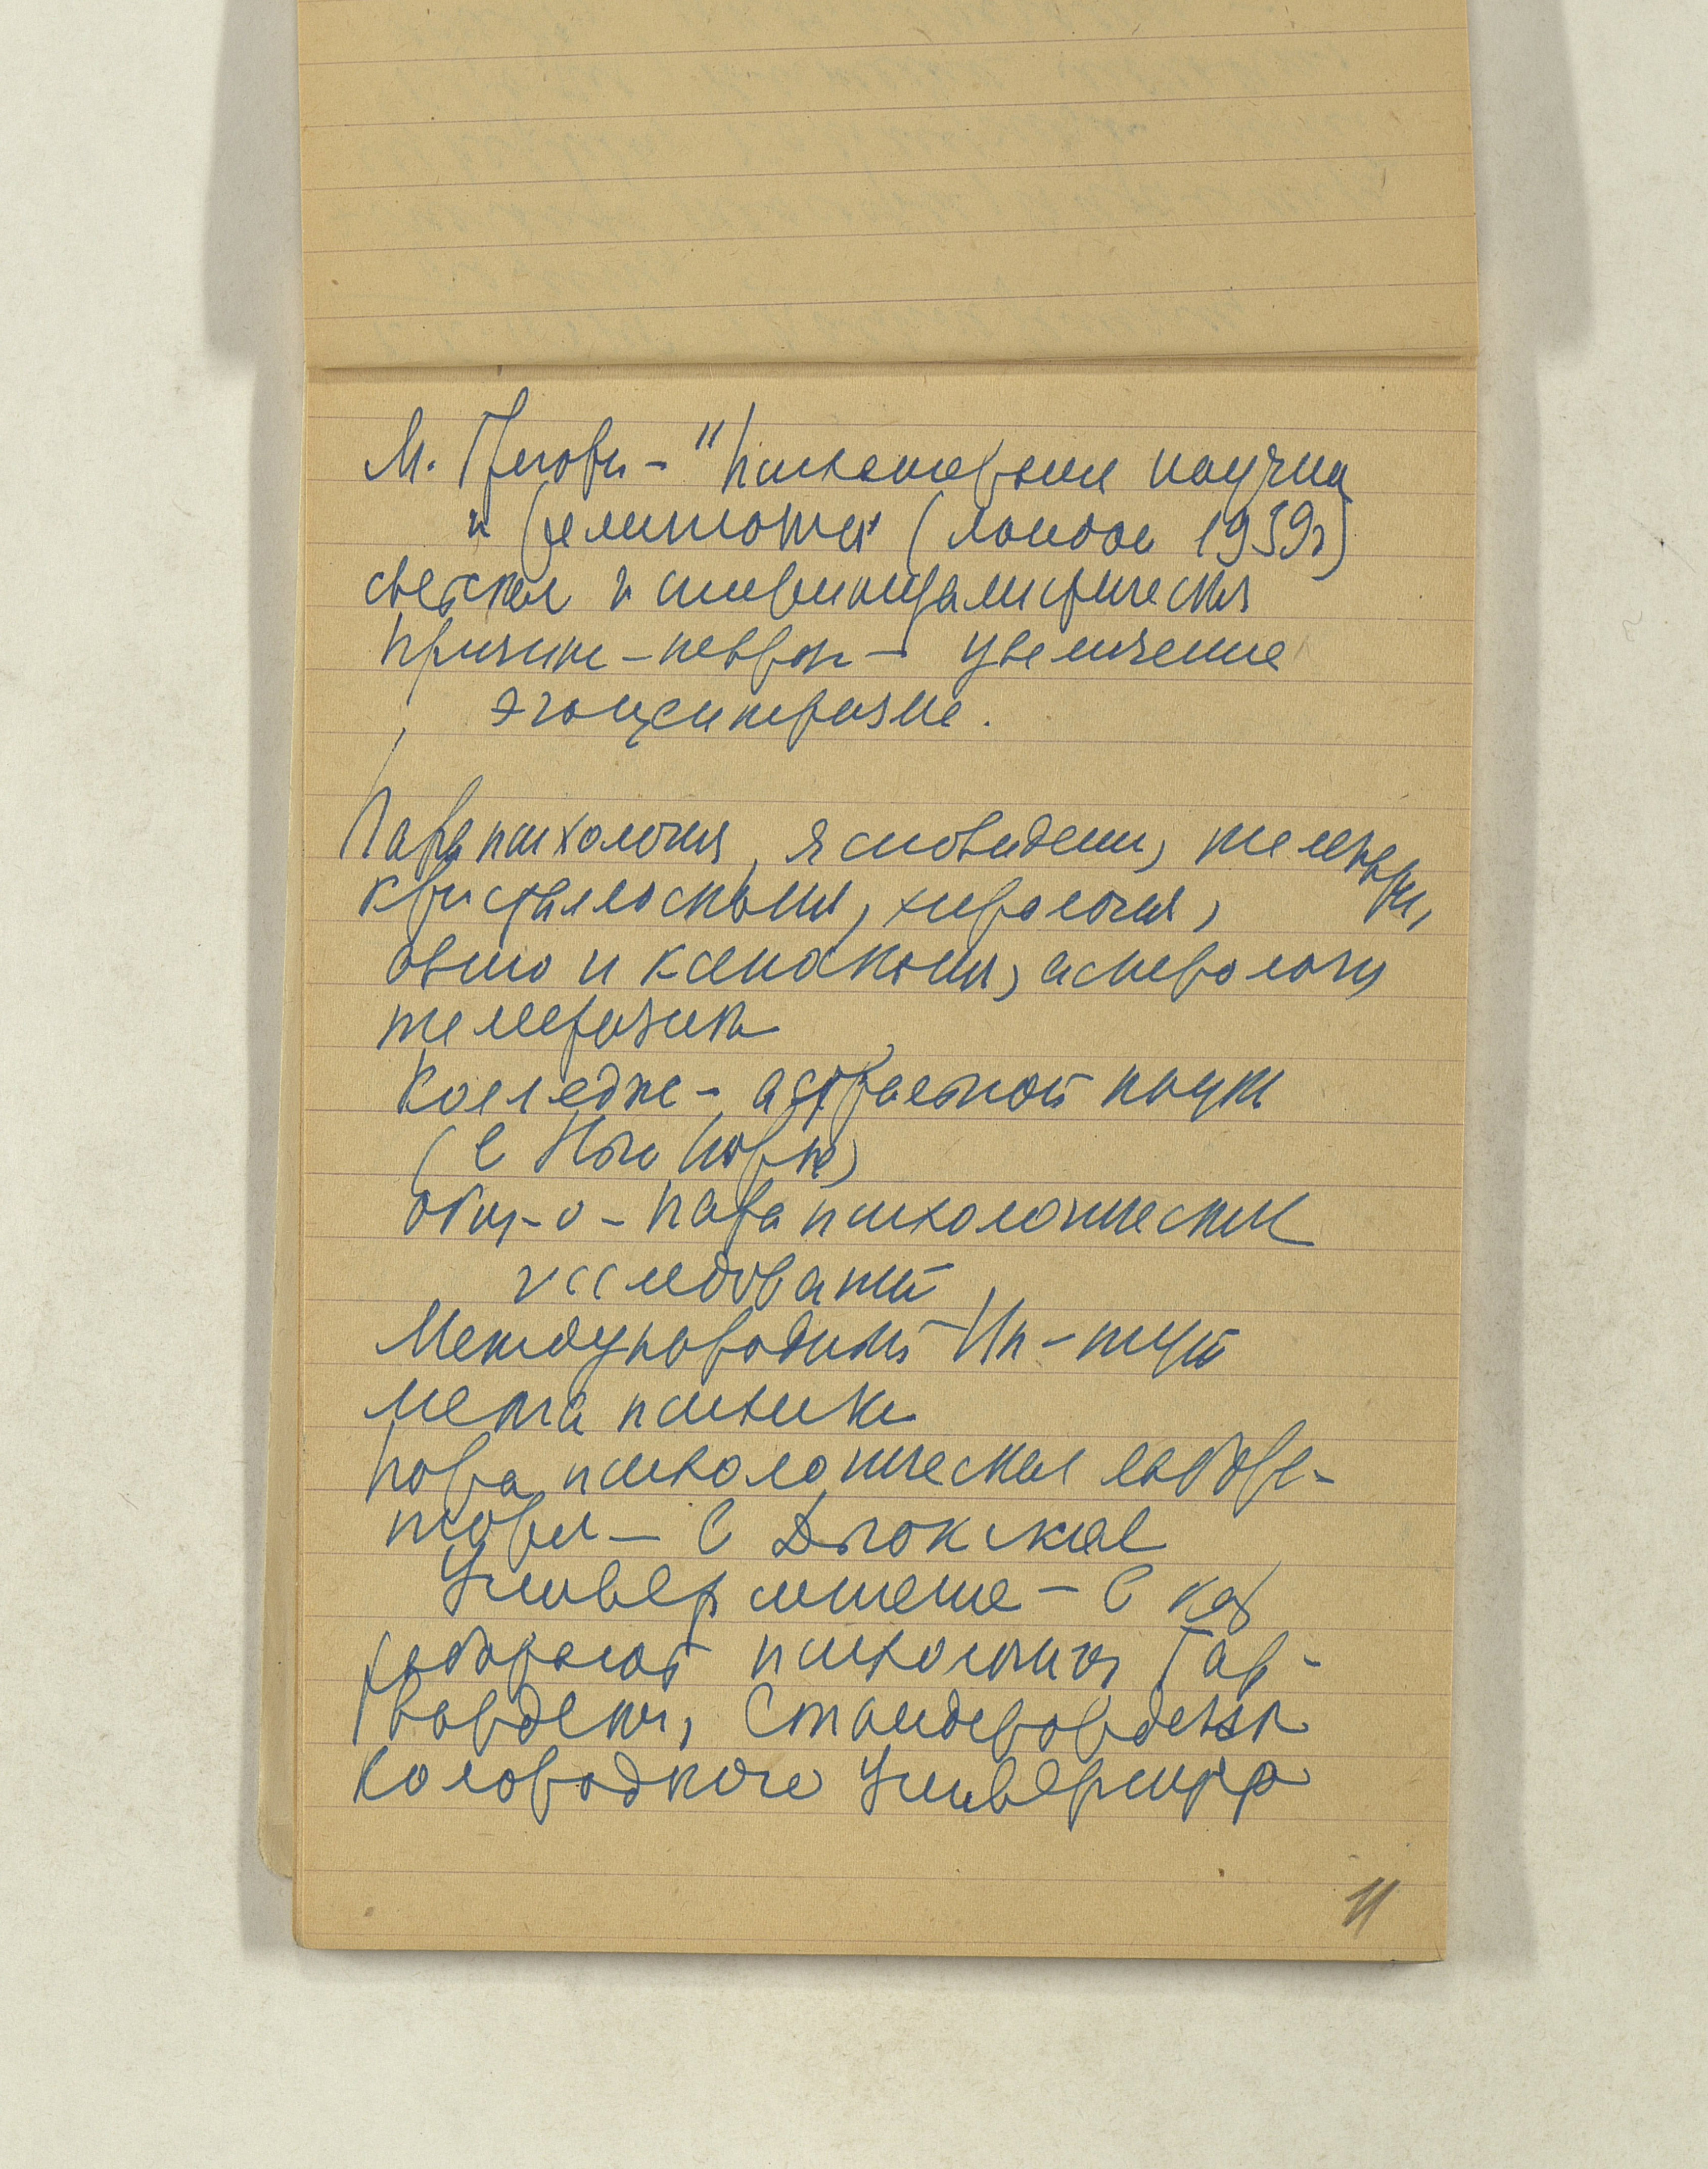 М. Грегори - "Психотерапия научная
и религиозная" (Лондон 1939г)
светская и спиритуалистическая
причина - невроза - увеличение
эгоцентризма.
Парапсихология, ясновидение, телепатия,
кристаллоскопия, хирология,
авто и ксеноскопия, астрология
телефизика
Колледж - астральной науки
(в Нью Йорке)
общ-о - парапсихологических
исследований
Международный Ин-тут
метапсихики
Парапсихологическая лабора-
тория - в Дьюкском
Университете - в ней
работают психологи Гар-
вардского, Стандфордского
Колорадского Университета
11